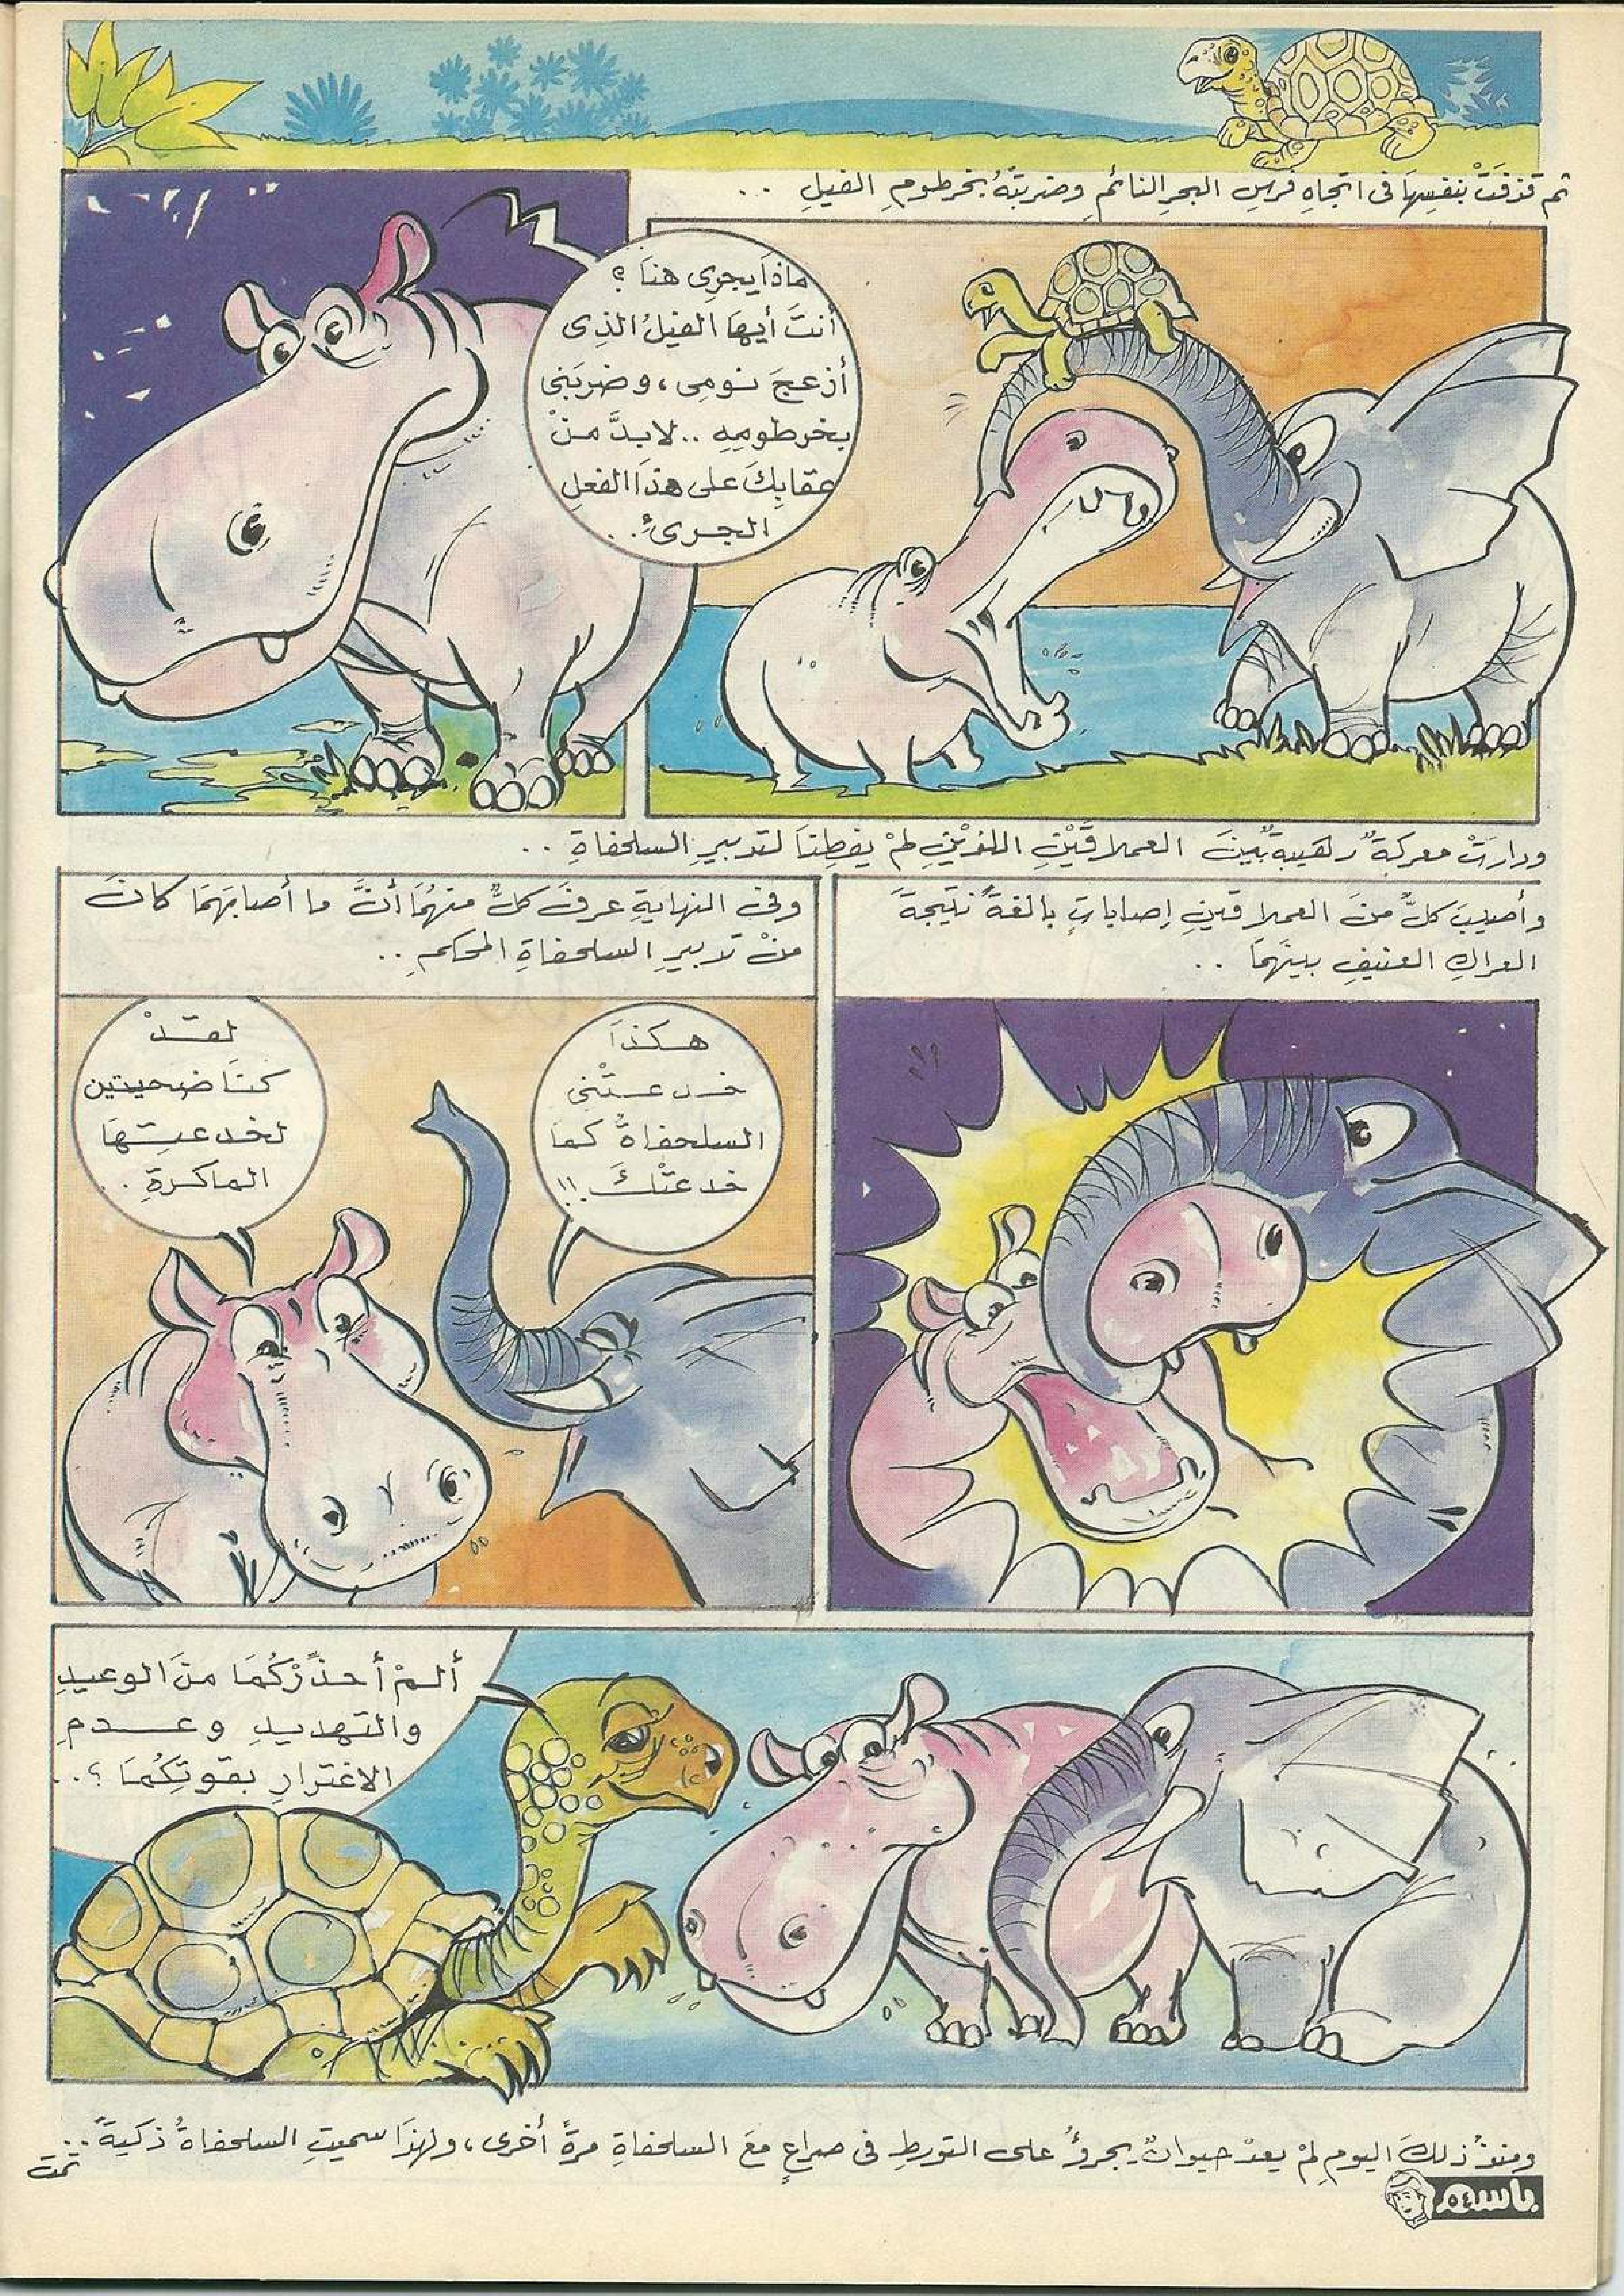 ثم قذفَتْ بنفسِهَا فى اتجاهِ فرسِ البحرِ النائمِ وضربتْهُ بخرطومِ الفيلِ ..
ماذَا يجرِى هنَا ؟
أنتَ أيهَا الفيلُ الذِى
أزعجَ نومِى، وضربَنِى
بخرطومِهِ .. لابدَّ منْ
عقابِكَ على هذَا الفعلِ
الجرىءِ ..
ودارتْ معركةٌ رهيبةٌ بينَ العملاقَيْنِ اللذيْنِ لمْ يفطِنَا لتدبيرِ السلحفاةِ ..
وأصيبَ كلٌّ منَ العملاقينِ إصاباتٍ بالغةً نتيجةَ
العراكِ العنيفِ بينَهمَا ..
وفى النهايةِ عرفَ كلٌّ منهُمَا أنَّ ما أصابَهمَا كانَ
منْ تدبيرِ السلحفاةِ المحكمِ ..
هكذَا
خدعتْنِى
السلحفاةُ كمَا
خدعتْكَ !!
لقدْ
كنَّا ضحيتين
لخدعتِهَا
الماكرةِ ..
ألمْ أحذِّرْكُمَا منَ الوعيدِ
والتهديدِ وعدمِ
الاغترارِ بقوتِكُمَا ؟ ..
ومنذُ ذلكَ اليومِ لمْ يعدْ حيوانٌ يجرؤُ على التورطِ فى صراعٍ معَ السلحفاةِ مرةً أخرى، ولهذَا سميتِ السلحفاةُ ذكيةً ..
تمت
باسم